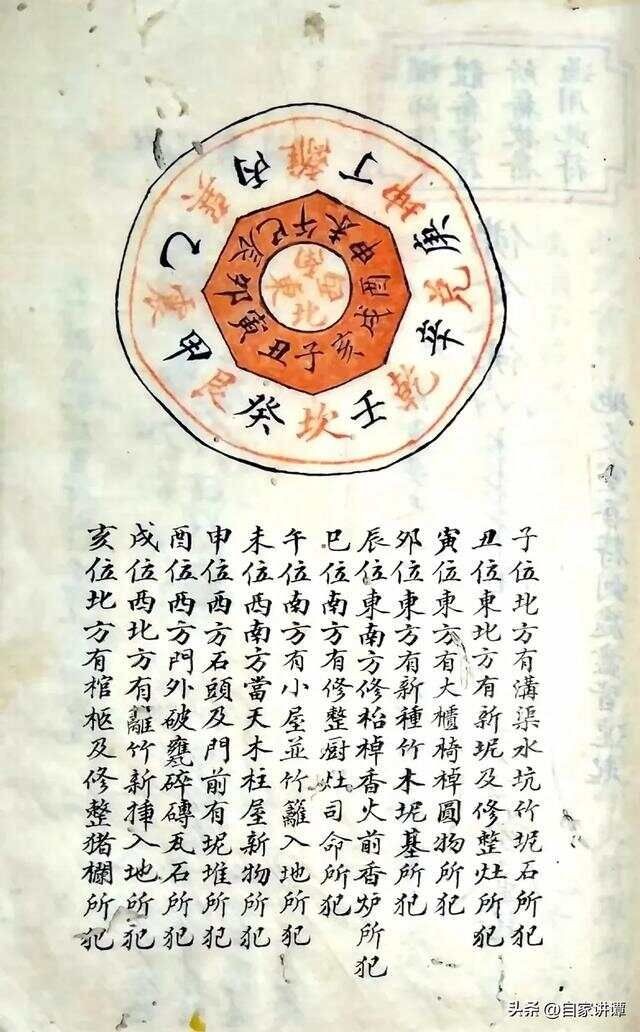 離丁坤庚兌辛乾壬坎癸艮甲震乙巽丙
午未申酉戌亥子丑寅卯辰巳
南西北東
子位北方有溝渠水坑竹坭石所犯
丑位東北方有新坭及修整灶所犯
寅位東方有大櫃椅棹圓物所犯
卯位東方有新種竹木坭基所犯
辰位東南方修枱棹香火前香炉所犯
巳位南方有修整厨灶司命所犯
午位南方有小屋並竹籬入地所犯
未位西南方當天木柱屋新物所犯
申位西方石頭及門前有坭堆所犯
酉位西方門外破甕碎磚瓦石所犯
戌位西北方有籬竹新插入地所犯
亥位北方有棺柩及修整猪欄所犯
头条 @自家讲谭